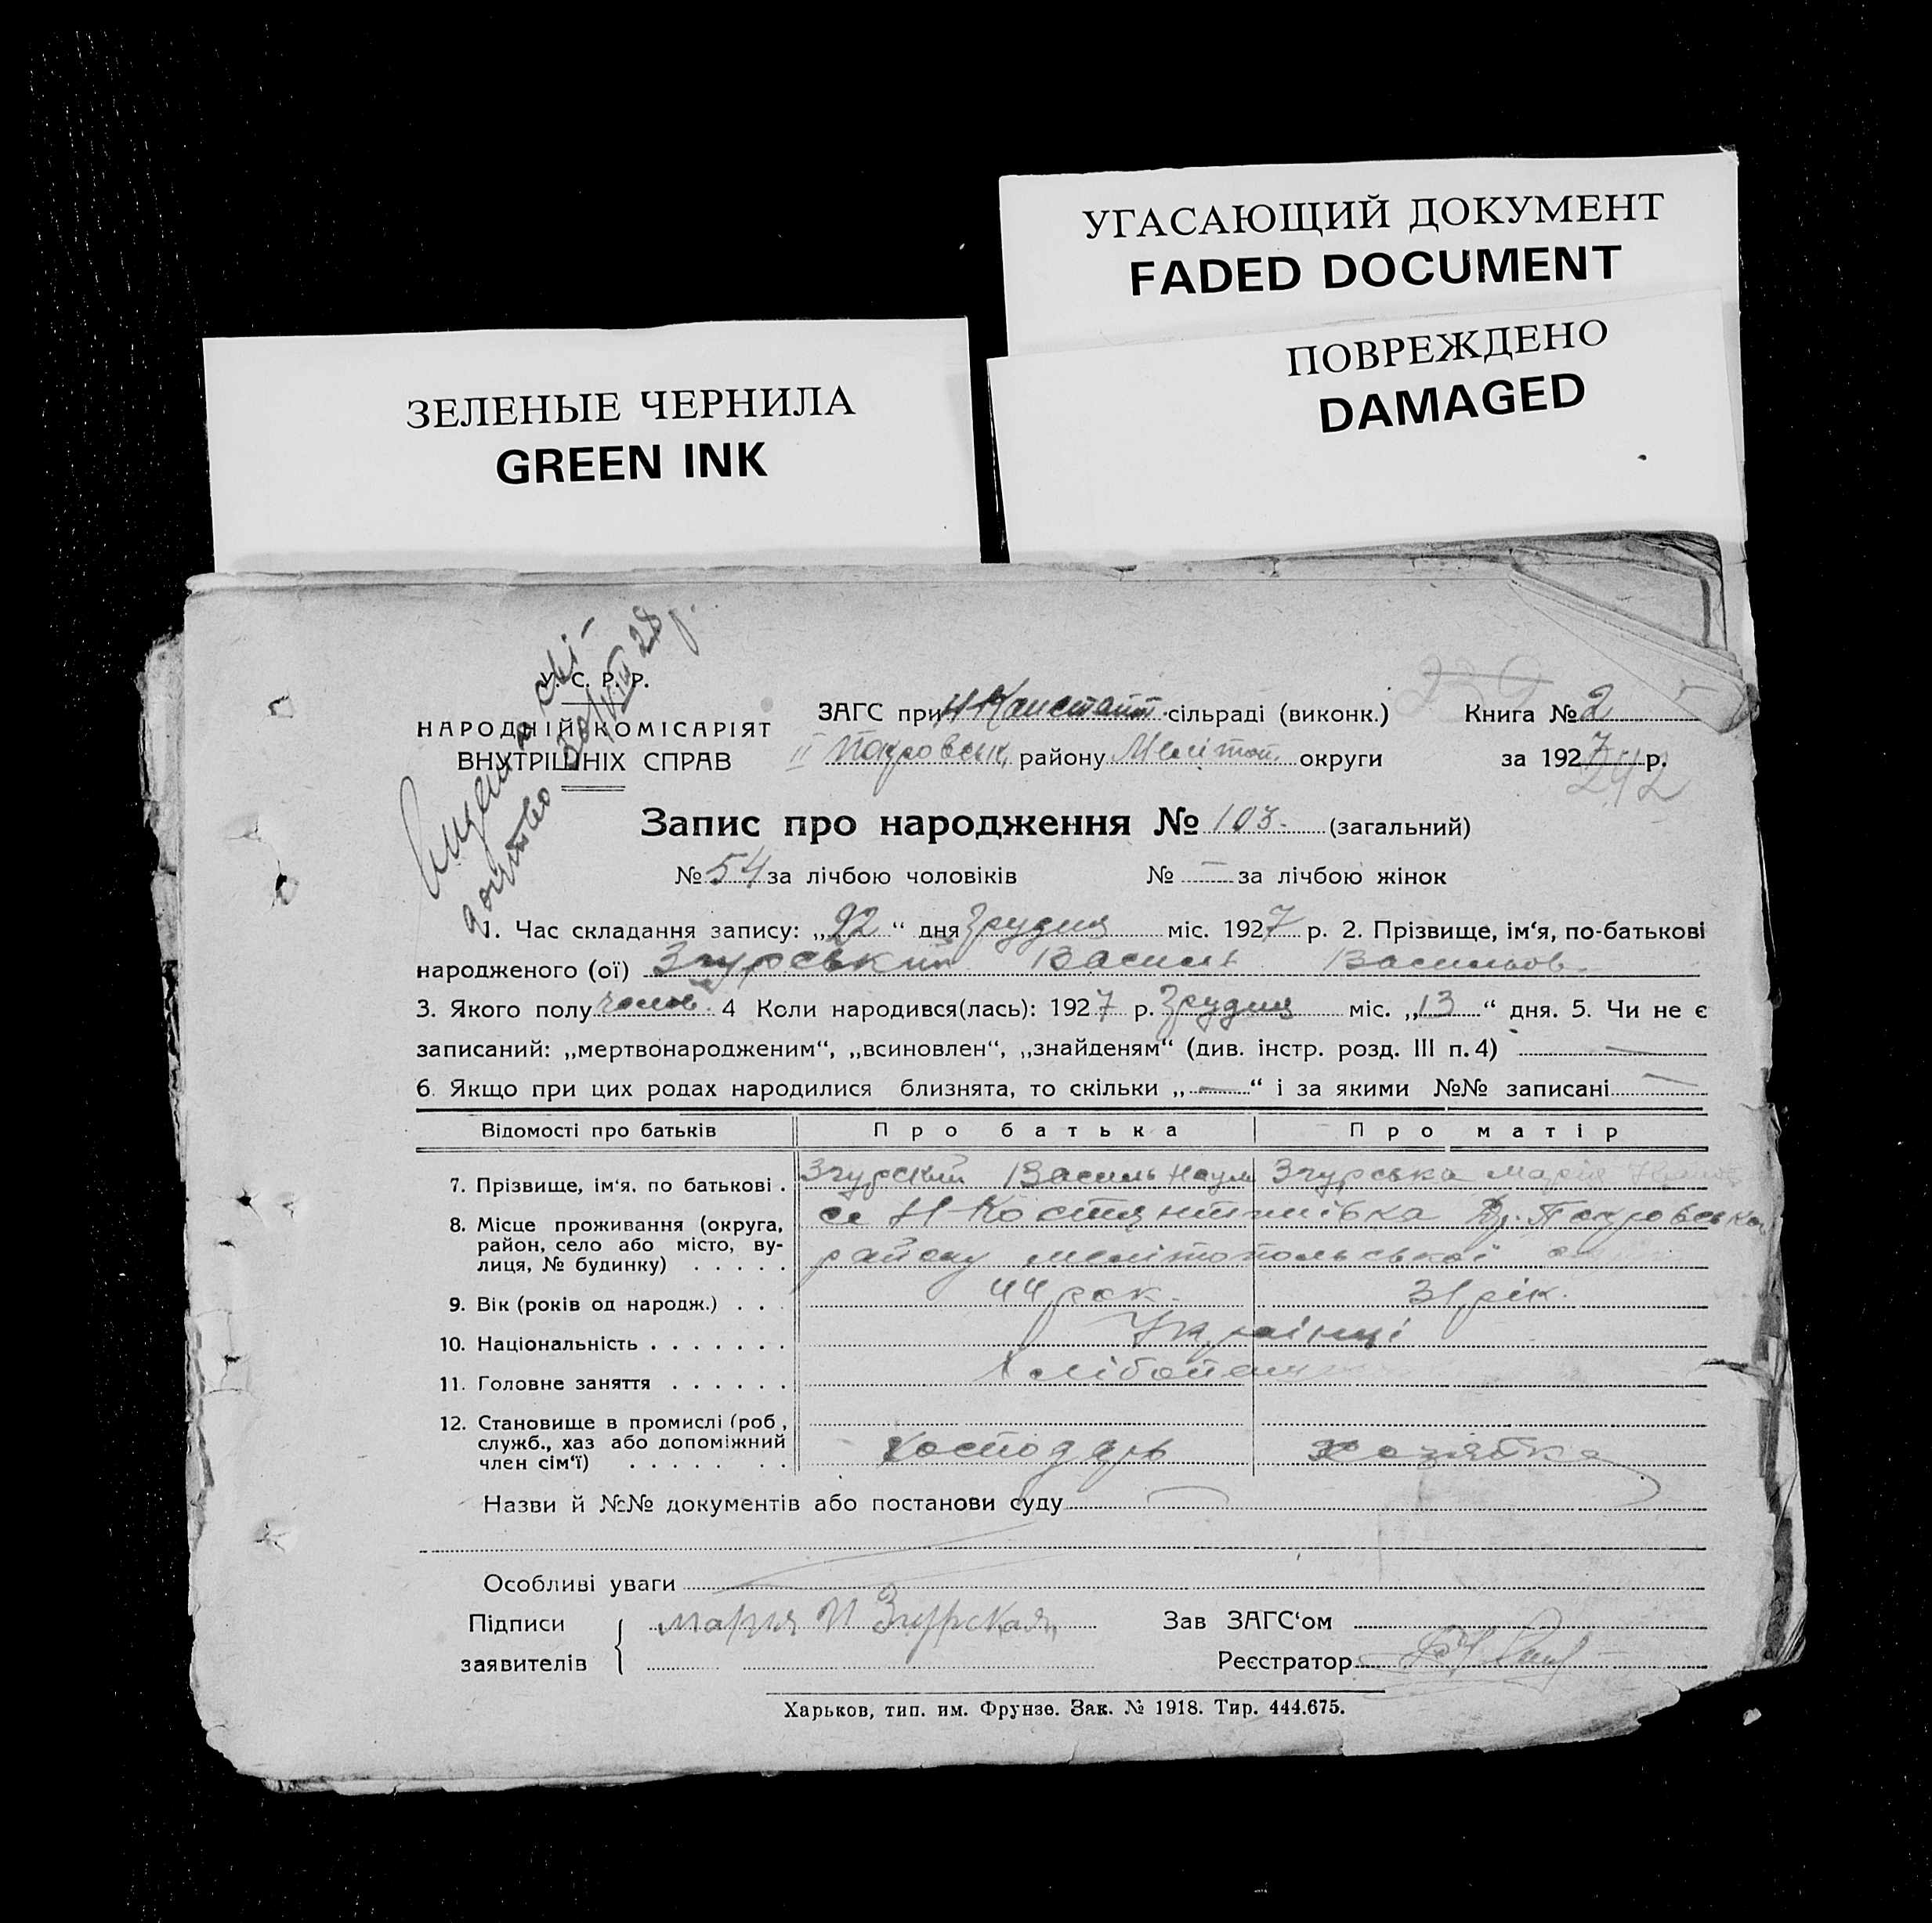 УГАСАЮЩИЙ ДОКУМЕНТ
FADED DOCUMENT
ПОВРЕЖДЕНО
DAMAGED
ЗЕЛЕНЫЕ ЧЕРНИЛА
GREEN INK
У. С. Р. Р.
НАРОДНІЙ КОМІСАРІЯТ
ВНУТРІШНІХ СПРАВ
30/VIII 28 р.
232
ЗАГС при Н Констант. сільраді (виконк.) Книга № 2
II Покровськ, району Меліт оп. округи за 1927 р.
242
Запис про народження № 103. (загальний)
№ 54 за лічбою чоловіків № — за лічбою жінок
1. Час складання запису: „22“ дня Грудня міс. 1927 р. 2. Прізвище, ім‘я, по-батькові
народженого (ої) Згурський Василь Васильов.
3. Якого полу чолов. 4 Коли народився(лась): 1927 р. Грудня міс. „13“ дня. 5. Чи не є
записаний: „мертвонародженим“, „всиновлен“, „знайденям“ (див. інстр. розд. III п. 4) —
6. Якщо при цих родах народилися близнята, то скільки „—“ і за якими №№ записані —
Відомості про батьків Про батька Про матір
7. Прізвище, ім‘я, по батькові . Згурский Василь Наум Згурська Марія
8. Місце проживання (округа, се Н Костянтинівка Др. Покровська
район, село або місто, ву-
лиця, № будинку) . . . . . району мелітопольської
9. Вік (років од народж.) . . . 44 рок. 31 рік.
10. Національність . . . . . . . Українці
11. Головне заняття . . . . . .
12. Становище в промислі (роб,
служб., хаз або допоміжний
член сім‘ї) . . . . . . . Господарь Хозяйка
Назви й №№ документів або постанови суду
Особливі уваги
Підписи Мария И Згурская Зав ЗАГС‘ом
заявителів Реєстратор
Харьков, тип. им. Фрунзе. Зак. № 1918. Тир. 444.675.